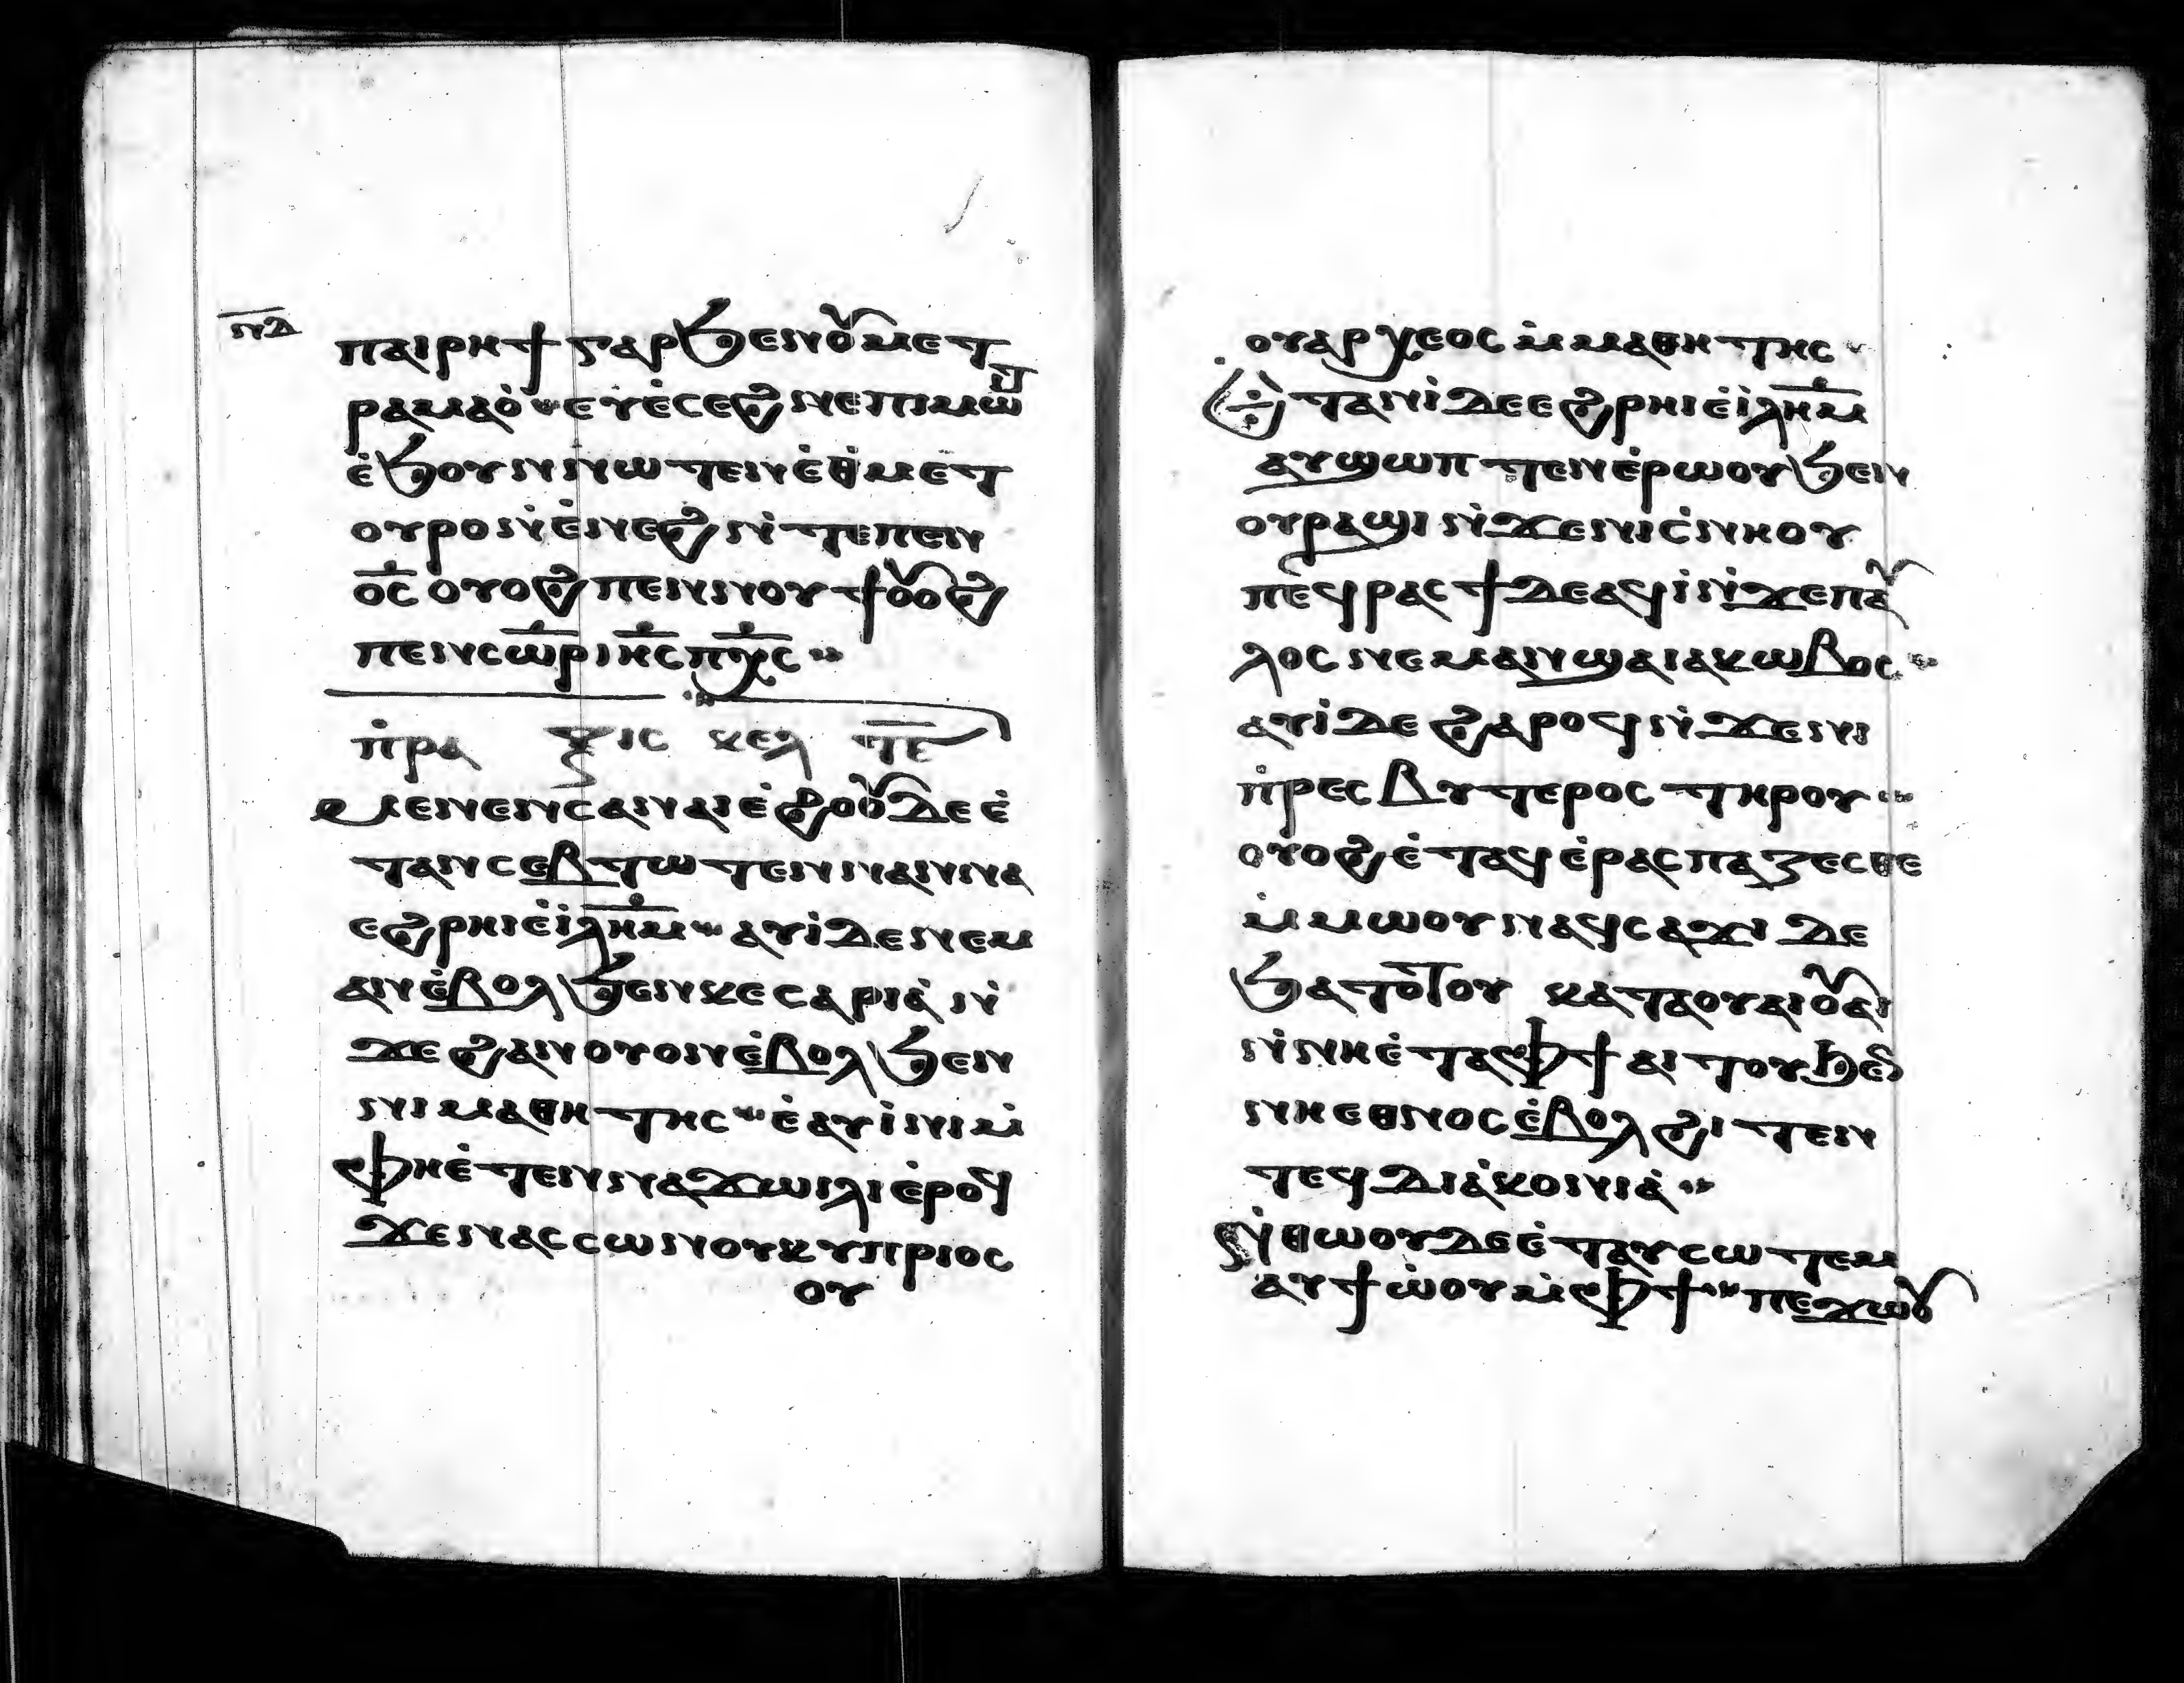 ⲛⲇ
ⲡⲁⲓⲣⲏϯ ⲅⲁⲣ ϧⲉⲛⲟⲩⲙⲉⲧ
ⲣⲁⲙⲁⲟ̀ ⲉⲩⲉ̀ⲥⲉϩⲛⲉ ⲡⲓⲙⲱⲓⲧ
ⲉ̀ϧⲟⲩⲛ ⲛⲱⲧⲉⲛ ⲉ̀ϯⲙⲉⲧ
ⲟⲩⲣⲟ ⲛ̀ⲉ̀ⲛⲉϩ ⲛ̀ⲧⲉⲡⲉⲛ
ⲟ̅ⲥ̅ ⲟⲩⲟϩ ⲡⲉⲛⲛⲟⲩϯ ⲟⲩⲟϩ
ⲡⲉⲛⲥⲱ̅ⲣ̅ ⲓ̅ⲏ̅ⲥ̅ ⲡ̅ⲭ̅ⲥ̅
ⲡ̀ⲣⲁ ⲝⲓⲥ ⲕⲉⲗ ⲧ̅ⲉ̅
ⲙⲉⲛⲉⲛⲥⲁⲛⲁⲓⲉ̀ϩⲟⲟⲩ ⲇⲉ ⲉ̀
ⲧⲁⲛⲥⲉⲃⲧⲱⲧⲉⲛ ⲛⲁⲛⲛⲁ
ⲉϩⲣⲏⲓ ⲉ̀ⲓ̀ⲗ̅ⲏ̅ⲙ̅ ⲁⲩⲓ̀ ⲇⲉ ⲛⲉⲙ
ⲁⲛ ⲉ̀ⲃⲟⲗ ϧⲉⲛ ⲕⲉⲥⲁⲣⲓⲁ̀ ⲛ̀
ϫⲉ ϩⲁⲛⲟⲩⲟⲛ ⲉ̀ⲃⲟⲗ ϧⲉⲛ
ⲛⲓⲙⲁⲑⲏⲧⲏⲥ ⲉ̀ⲁⲩⲓ̀ⲛⲓ ⲙ̀
ⲫⲏⲉ̀ⲧⲉⲛⲛⲁϫⲱⲓⲗⲓ ⲉ̀ⲣⲟϥ
ϫⲉ ⲛⲁⲥⲥⲱⲛ ⲟⲩⲕⲩⲡⲣⲓⲟⲥ
ⲟⲩ
ⲟⲩⲁⲣⲭⲉⲟⲥ ⲙ̀ⲙⲁⲑⲏⲧⲏⲥ
ⲉⲧⲁⲛⲓ̀ ⲇⲉ ⲉϩⲣⲏⲓ ⲉ̀ⲓ̀ⲗ̅ⲏ̅ⲙ̅
ⲁⲩϣⲱⲡⲧⲉⲛ ⲉ̀ⲣⲱⲟⲩ ϧⲉⲛ
ⲟⲩⲣⲁϣⲓ ⲛ̀ϫⲉⲛⲓⲥ̀ⲛⲏⲟⲩ
ⲡⲉϥⲣⲁⲥϯ ⲇⲉ ⲁϥⲓ̀ ⲛ̀ϫⲉⲡⲁⲩ
ⲗⲟⲥ ⲛⲉⲙⲁⲛ ϣⲁ ⲓⲁⲕⲱⲃⲟⲥ
ⲁⲩⲓ̀ ⲇⲉ ϩⲁⲣⲟϥ ⲛ̀ϫⲉⲛⲓ
ⲡ̀ⲣⲉⲥⲃⲩⲧⲉⲣⲟⲥ ⲧⲏⲣⲟⲩ
ⲟⲩⲟϩ ⲉ̀ⲧⲁϥⲉ̀ⲣⲁⲥⲡⲁⲍⲉⲥⲑⲉ
ⲙ̀ⲙⲱⲟⲩ ⲛⲁϥⲥⲁϫⲓ ⲇⲉ
ϧⲁⲧⲟⲧⲟⲩ ⲕⲁⲧⲁ ⲟⲩⲁⲓ ⲟⲩⲁⲓ
ⲛ̀ⲛⲏⲉ̀ⲧⲁⲫϯ ⲁⲓⲧⲟⲩ ϧⲉⲛ
ⲛⲏⲉⲑⲛⲟⲥ ⲉ̀ⲃⲟⲗ ϩⲓⲧⲉⲛ
ⲧⲉϥⲇⲓⲁ̀ⲕⲟⲛⲓⲁ̀
ⲛ̀ⲑⲱⲟⲩ ⲇⲉ ⲉ̀ⲧⲁⲩⲥⲱⲧⲉⲙ
ⲁⲩϯⲱ̀ⲟⲩ ⲙ̀ⲫϯ ⲡⲉϫⲱⲟⲩ